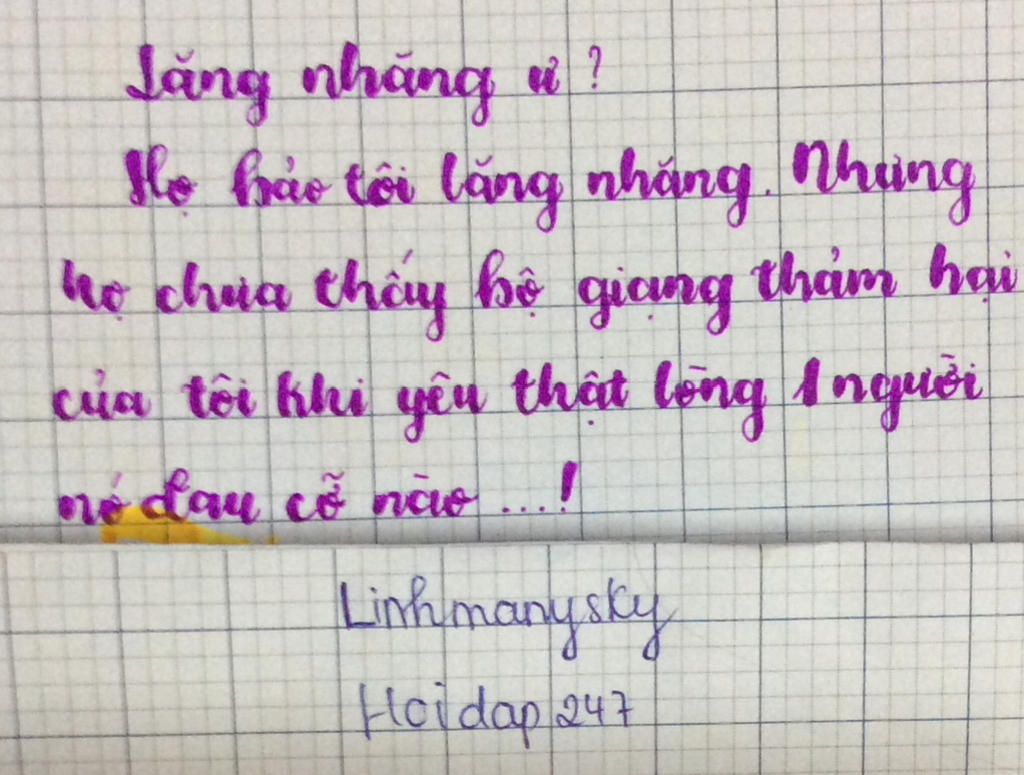 Lăng nhăng ư?
Họ bảo tôi lăng nhăng. Nhưng
họ chưa thấy bộ giạng thảm hại
của tôi khi yêu thật lòng 1 người
nó đau cỡ nào ...!
Linhmanysky
Hoidap247